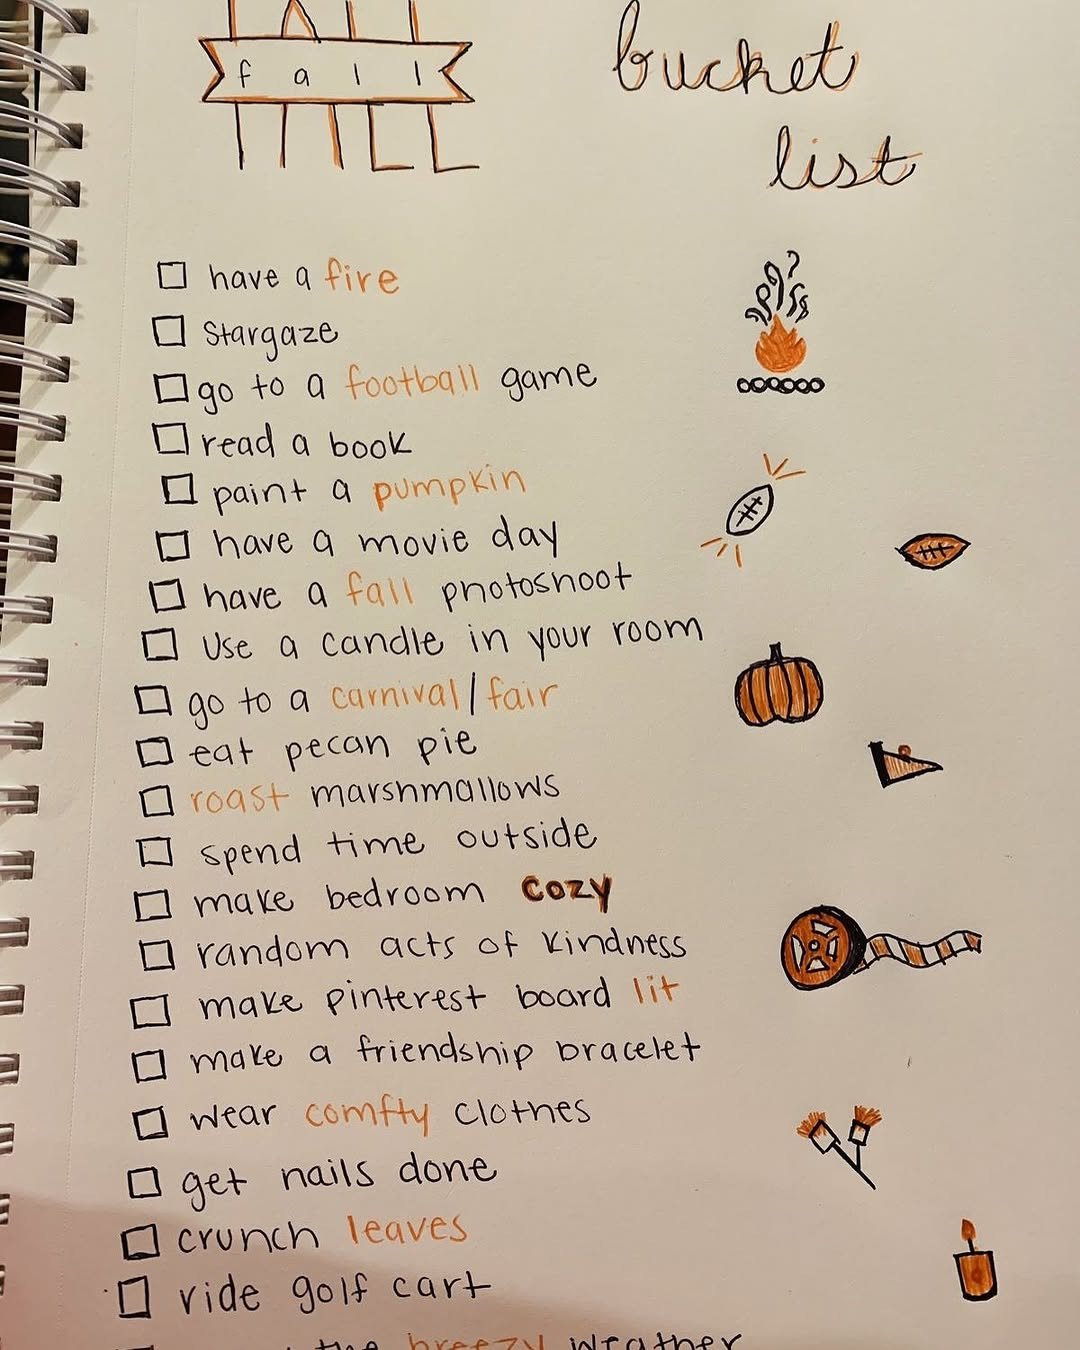 FALL
fall
bucket
list
have a fire
Stargaze
go to a football game
read a book
paint a pumpkin
have a movie day
have a fall photoshoot
Use a candle in your room
go to a carnival/fair
eat pecan pie
roast marshmallows
spend time outside
make bedroom cozy
random acts of kindness
make pinterest board lit
make a friendship bracelet
wear comfty clothes
get nails done
crunch leaves
ride golf cart
the breezy weather